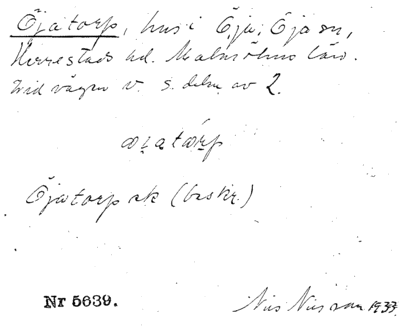 Öjatorp, hus i Öja, Öja sn,
Herrestads hd. Malmöhus län.
Vid vägen v. s. delen av 2.
Öjatorp ek (beskr.)
Nr 5639.
Nils Nilsson 1933